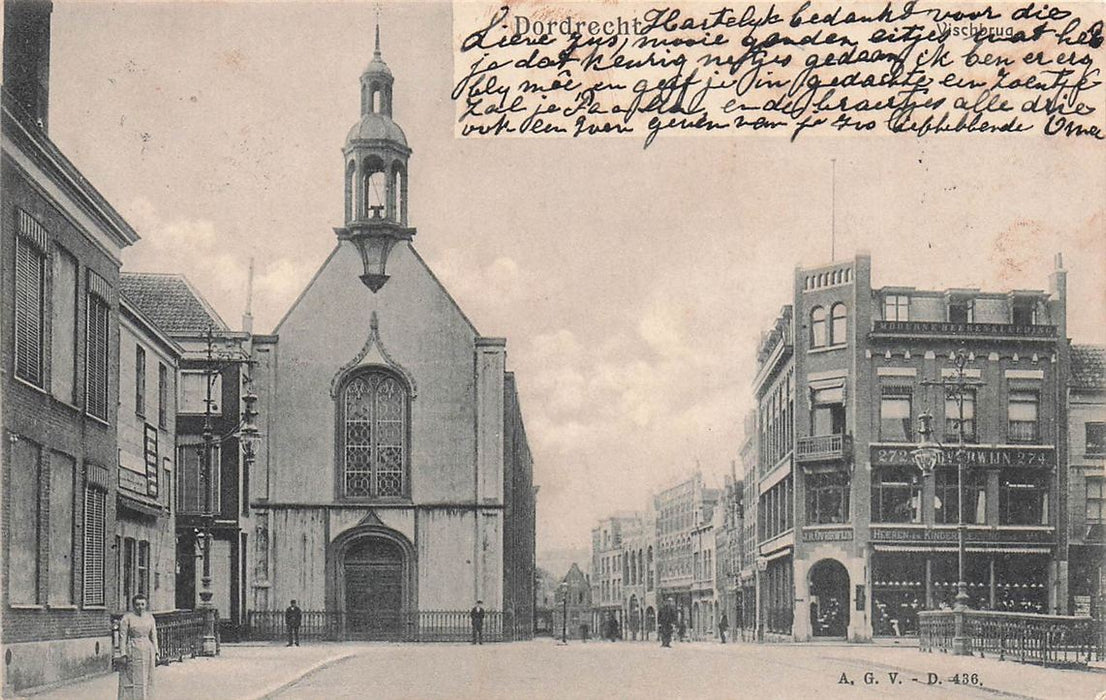 Dordrecht
Vischbrug
Hartelyk bedankt voor die
Lieve zus, mooie gouden eitjes wat heb
je dat keurig netjes gedaan, ik ben er erg
bly meê en geef je in gedachte een zoentje
zal je Paa en de broertjes alle drie
ook een zoen geven van je zoo liefhebbende Oma
MODERNE HEERENKLEEDING
272 OUWERWIJN 274
HEEREN- EN KINDER
A. G. V. - D. 436.